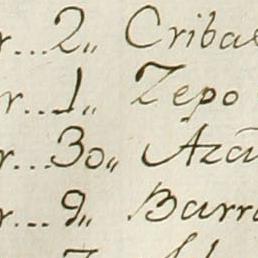 r...2,, Cribas
r...1,, Zepo
r...30,, Azā
r...9,, Barra